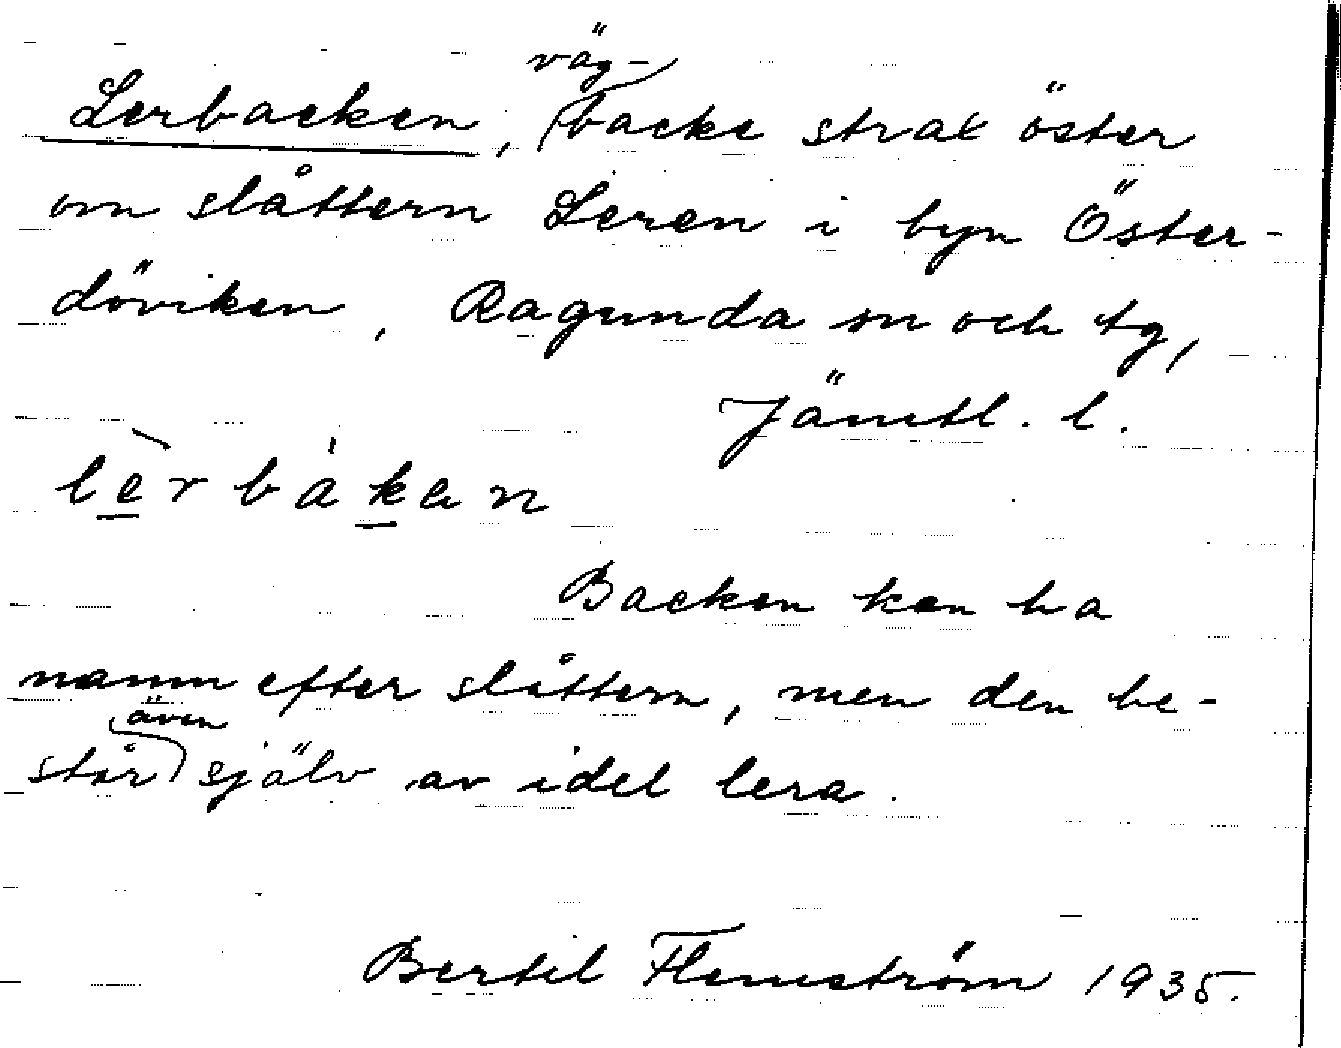 Lerbacken, vägbacke strax öster
om slåttern Leren i byn Öster-
döviken, Ragunda sn och tg,
Jämtl. l.
lèrbákan
Backen kan ha
namn efter slåttern, men den be-
står även själv av idel lera.
Bertil Flemström 1935.